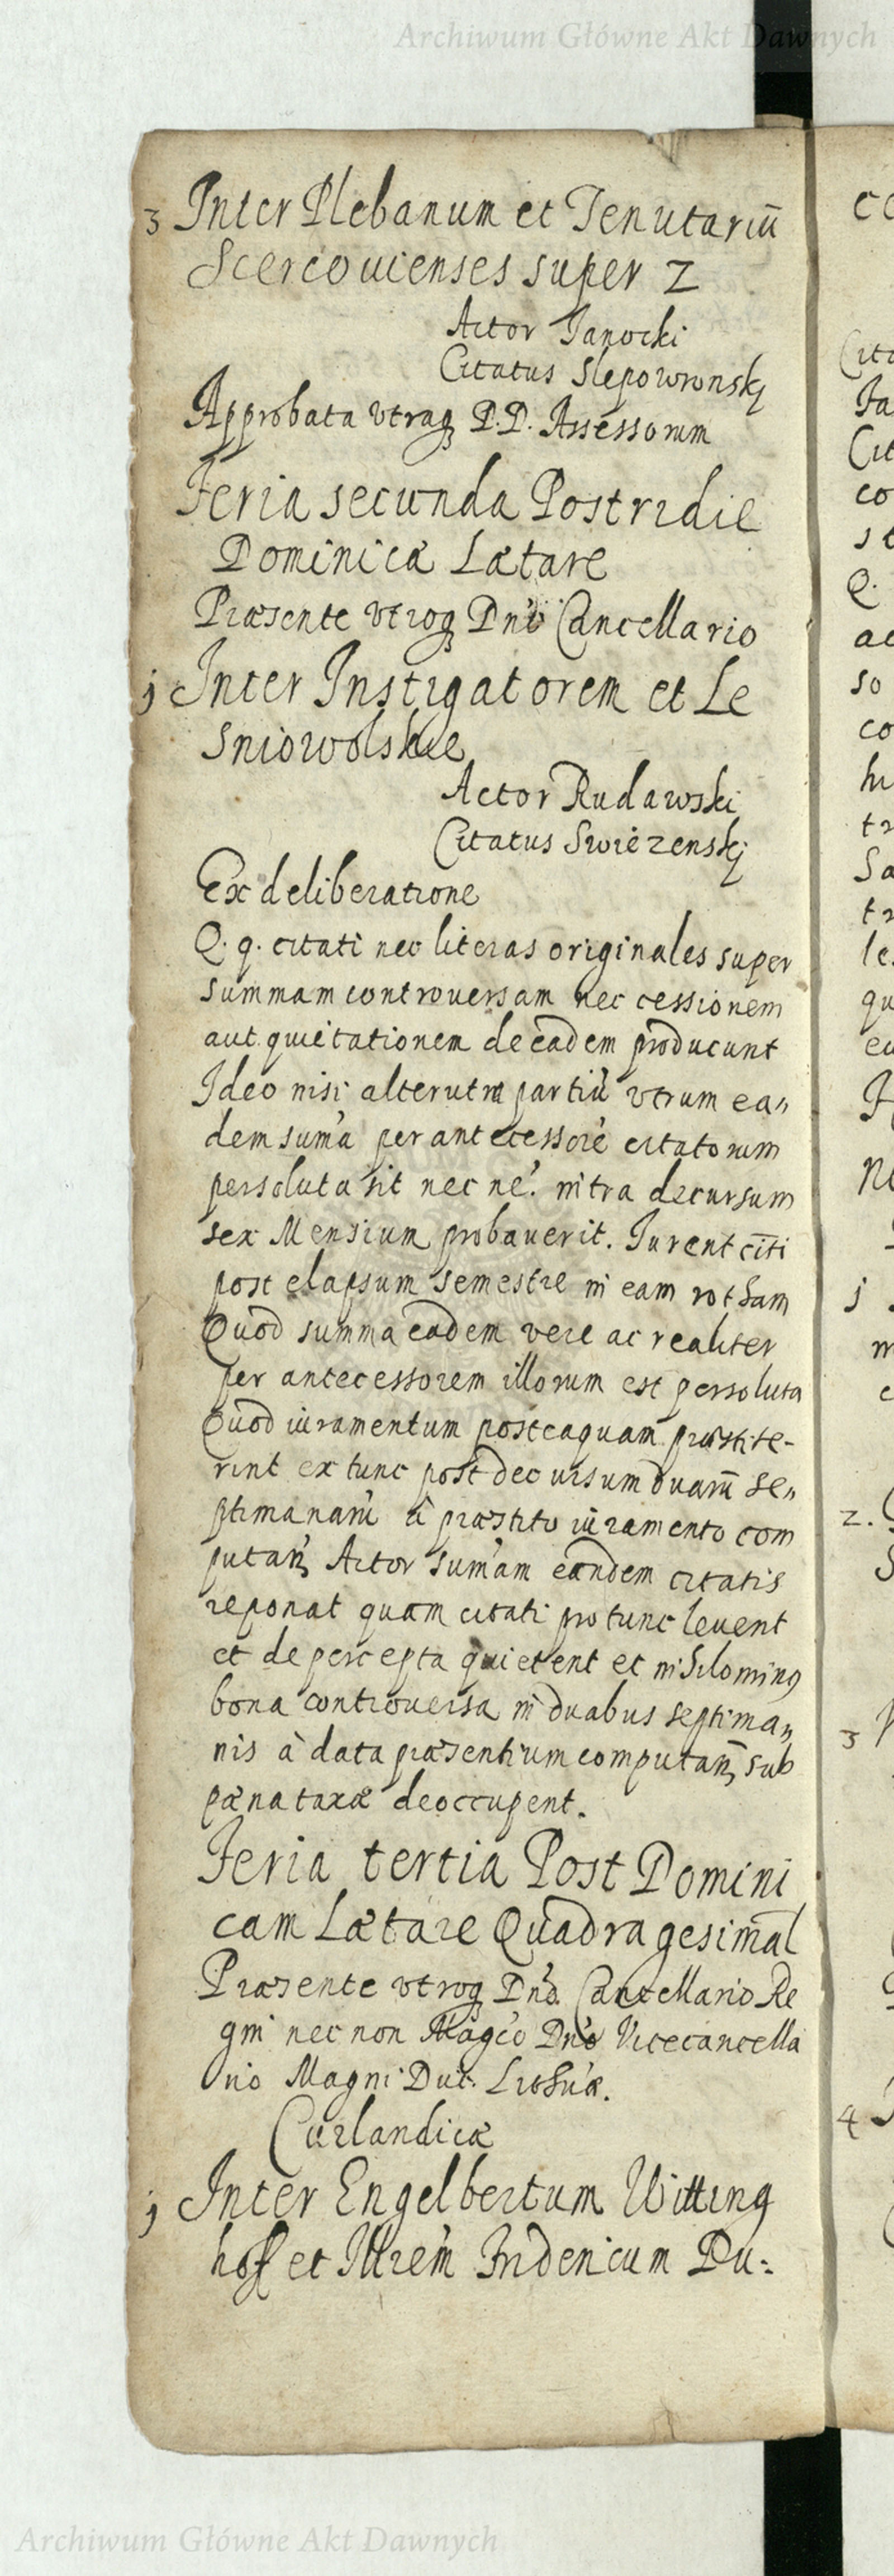 Archiwum Główne Akt Dawnych
3 Inter Plebanum et Tenutariū
Scercouienses super 2
Actor Janocki
Citatus Slepowronskj
Approbata vtraq D.D. Assessorum
Feria secunda Postridie
Dominicæ Lætare
Præsente vtroq Dn̄o Cancellario
j Inter Instigatorem et Le
sniowolskie
Actor Rudawski
Citatus Swiezenskj
Ex deliberatione
Q. q. citati nec literas originales super
summam controuersam nec cessionem
aut quietationem de eadem producunt
Ideo nisi alterutra partiū vtrum ea„
dem sum̄a per antecessorē citatorum
persoluta sit nec ne. intra decursum
sex Mensium probauerit. Jurent cīti
post elapsum semestre in eam rotham
Quod summa eadem vere ac realiter
per antecessorem illorum est persoluta
Quod iuramentum posteaquam præstite-
rint ex tunc post decursum duarū se„
ptimanarū à præstito iuramento com
putan̄ Actor sum̄am eandem citatis
reponat quam citati pro tunc leuent
et de percepta quietent et nihilominꝰ
bona controuersa in duabus septima„
nis à data præsentium computan̄ sub
pæna taxæ deoccupent.
Feria tertia Post Domini
cam Lætare Quadragesimal
Præsente vtroq Dn̄o Cancellario Re
gni nec non Magc̄o Dn̄o Vicecancella
rio Magni Duc. Lithuæ.
Curlandicæ
j Inter Engelbertum Witting
hoff et Illrem̄ Fridericum Du:
Archiwum Główne Akt Dawnych